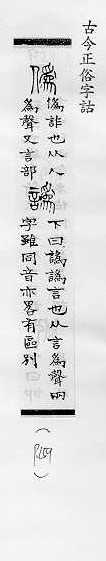 古今正俗字詁
僞
僞詐也从人
爲聲又言部
譌
下曰譌譌言也从言爲聲兩
字雖同音亦畧有區別